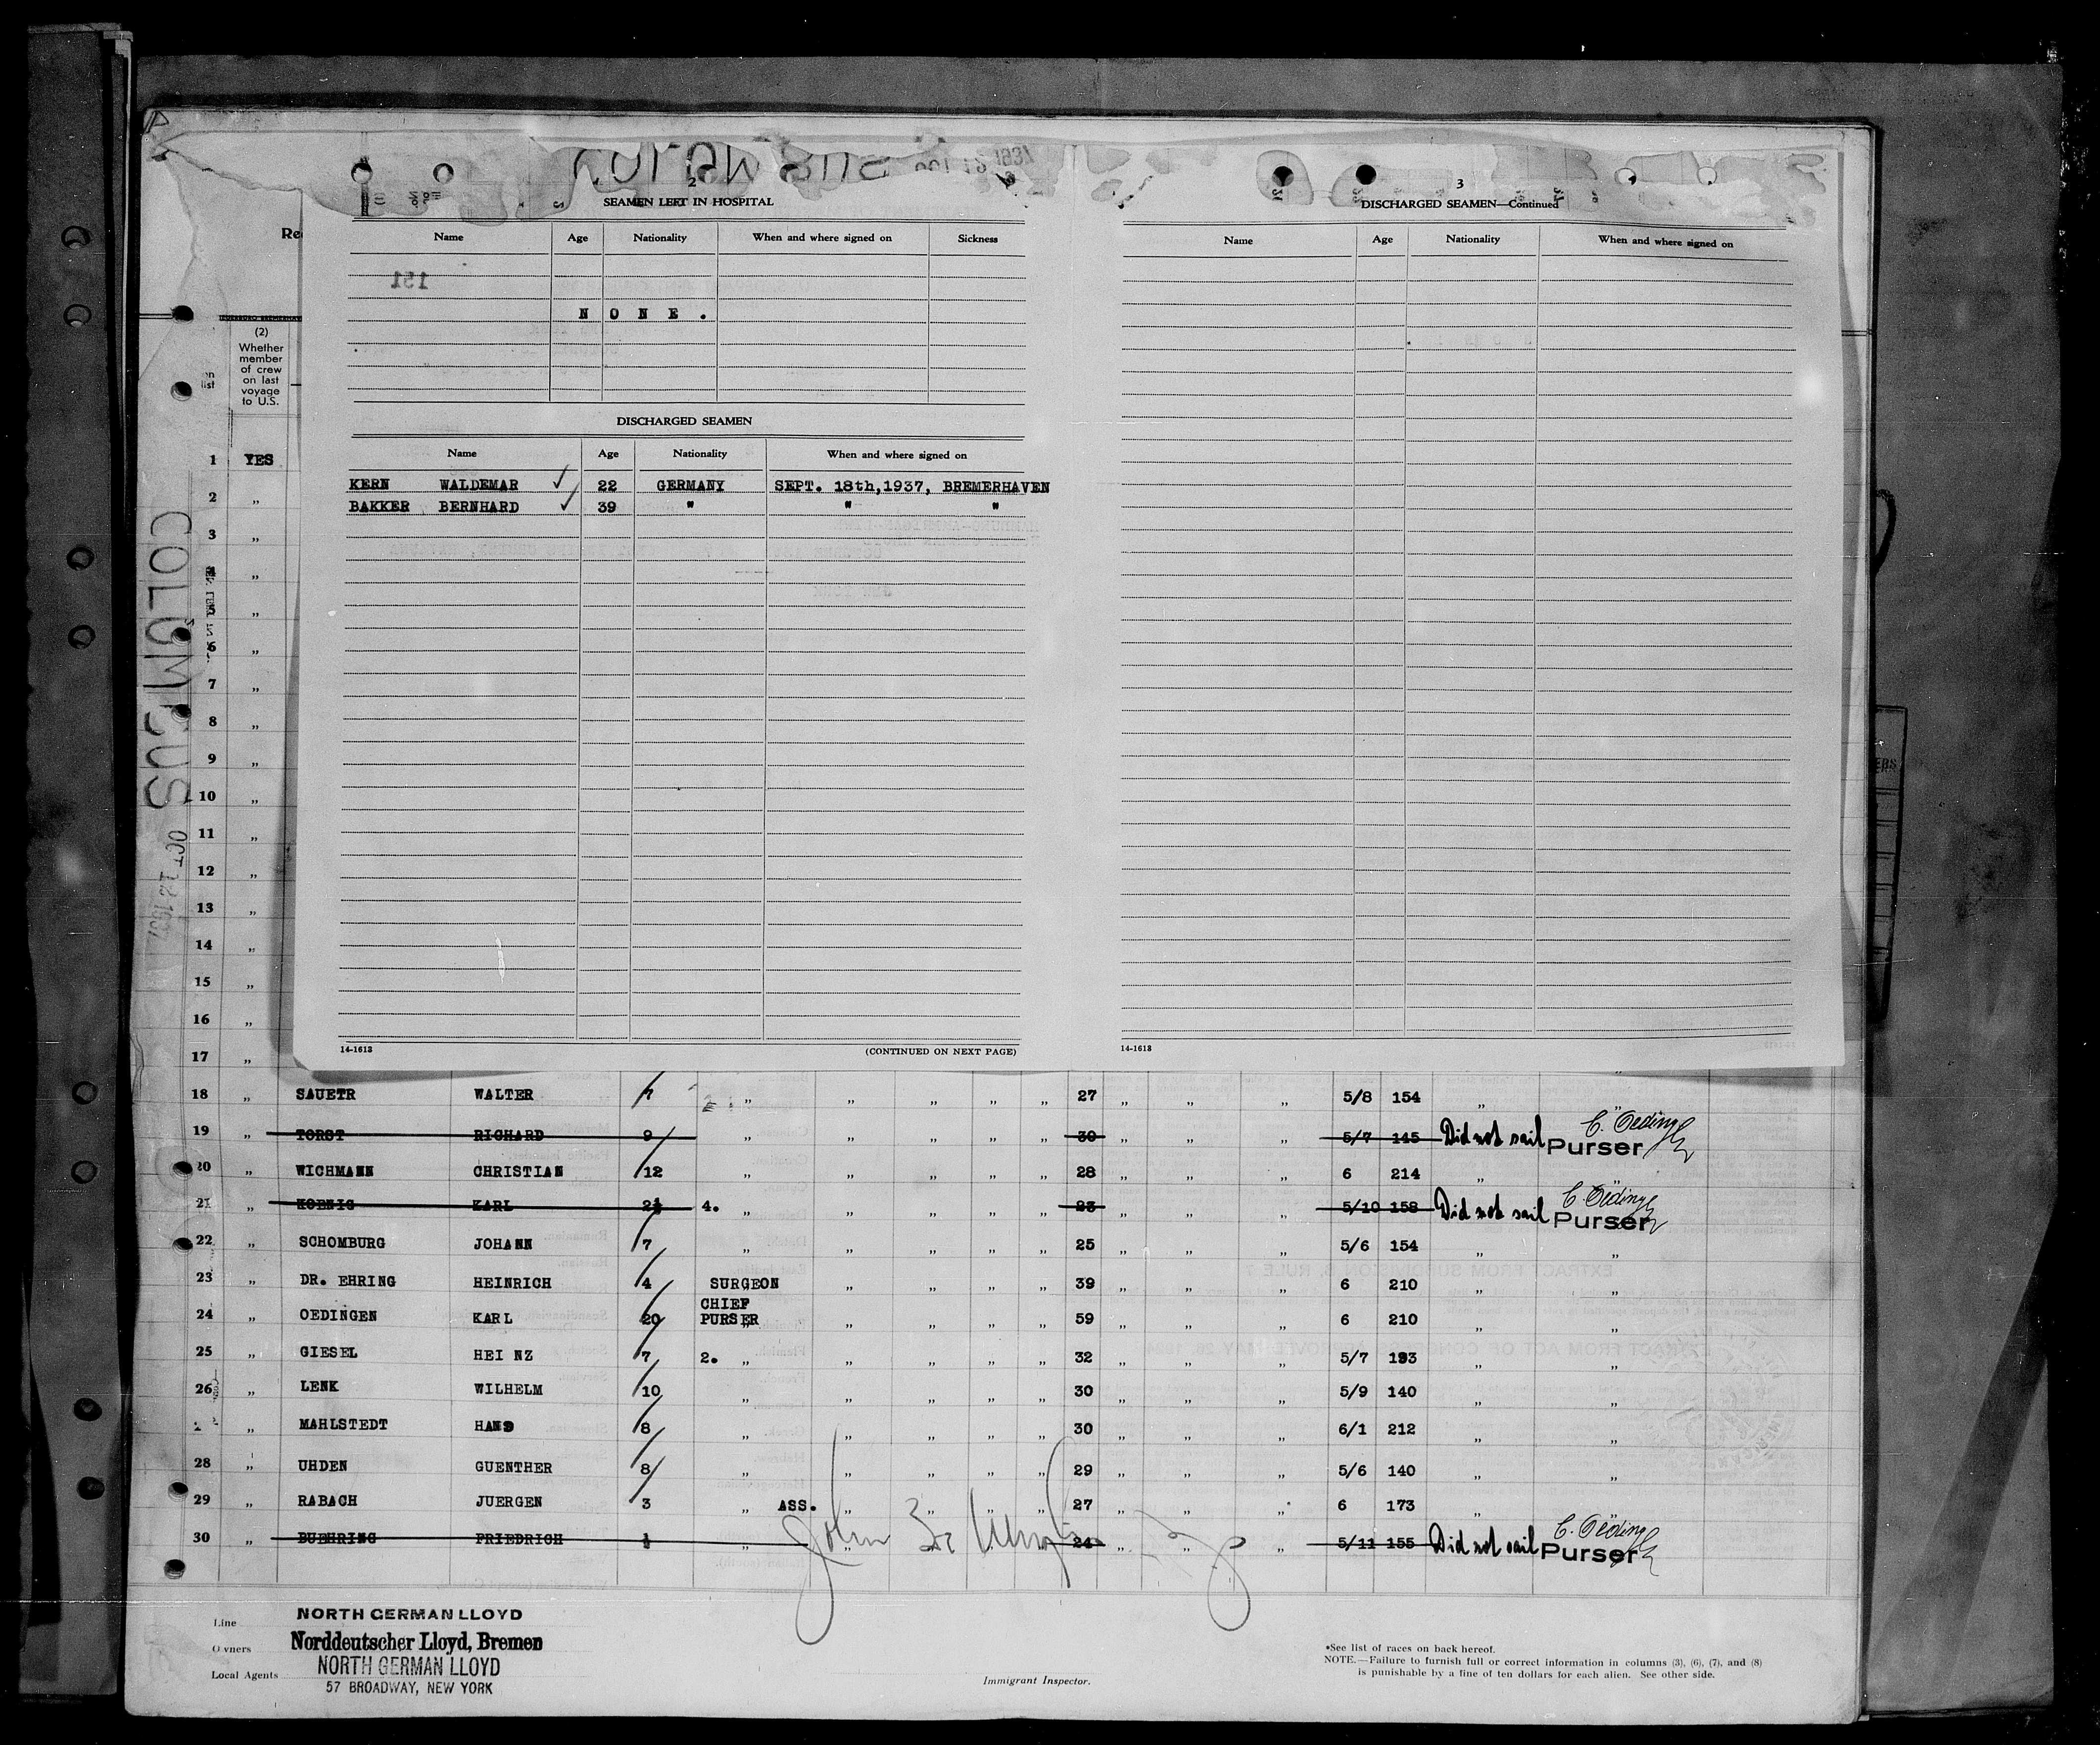 COLUMBUS OCT 12 1937
2
SEAMEN LEFT IN HOSPITAL
Name Age Nationality When and where signed on Sickness
151
N O N E .
DISCHARGED SEAMEN
Name Age Nationality When and where signed on
KERN WALDEMAR ✓ 22 GERMANY SEPT. 18th,1937, BREMERHAVEN
BAKKER BERNHARD ✓ 39 " " "
14-1613 (CONTINUED ON NEXT PAGE)
3
DISCHARGED SEAMEN—Continued
Name Age Nationality When and where signed on
14-1613
COLUMBUS
OCT 12 1937
(2)
Whether
member
of crew
on last
voyage
to U.S.
list
1 YES
2 „
3 „
4 „
5 „
6 „
7 „
8 „
9 „
10 „
11 „
12 „
13 „
14 „
15 „
16 „
17 „
18 „ SAUETR WALTER 7 „ „ „ „ „ 27 „ „ „ 5/8 154 „ „
19 „ TORST RICHARD 9 „ „ „ „ „ 30 „ „ „ 5/7 145 Did not sail C. Oeding Purser
20 „ WICHMANN CHRISTIAN 12 „ „ „ „ „ 28 „ „ „ 6 214 „
21 „ KOENIG KARL 2½ 4. „ „ „ „ „ 23 „ „ „ 5/10 158 Did not sail C. Oeding Purser
22 „ SCHOMBURG JOHANN 7 „ „ „ „ „ 25 „ „ „ 5/6 154 „ „
23 „ DR. EHRING HEINRICH 4 SURGEON „ „ „ „ 39 „ „ „ 6 210 „ „
24 „ OEDINGEN KARL 20 CHIEF PURSER „ „ „ „ 59 „ „ „ 6 210 „ „
25 „ GIESEL HEINZ 7 2. „ „ „ „ „ 32 „ „ „ 5/7 193 „ „
26 „ LENK WILHELM 10 „ „ „ „ „ 30 „ „ „ 5/9 140 „ „
„ MAHLSTEDT HANS 8 „ „ „ „ „ 30 „ „ „ 6/1 212 „ „
28 „ UHDEN GUENTHER 8 „ „ „ „ „ 29 „ „ „ 5/6 140 „ „
29 „ RABACH JUERGEN 3 „ ASS. „ „ „ „ 27 „ „ „ 6 173 „ „
30 „ BUEHRING FRIEDRICH ½ „ „ „ „ „ 24 „ „ „ 5/11 155 Did not sail C. Oeding Purser
John
Line NORTH GERMAN LLOYD
Owners Norddeutscher Lloyd, Bremen
Local Agents NORTH GERMAN LLOYD
57 BROADWAY, NEW YORK
Immigrant Inspector.
*See list of races on back hereof.
NOTE.—Failure to furnish full or correct information in columns (3), (6), (7), and (8)
is punishable by a fine of ten dollars for each alien. See other side.